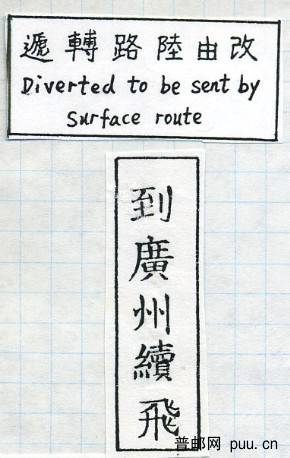 改由陸路轉遞
Diverted to be sent by
Surface route
到廣州續飛
普邮网 puu.cn